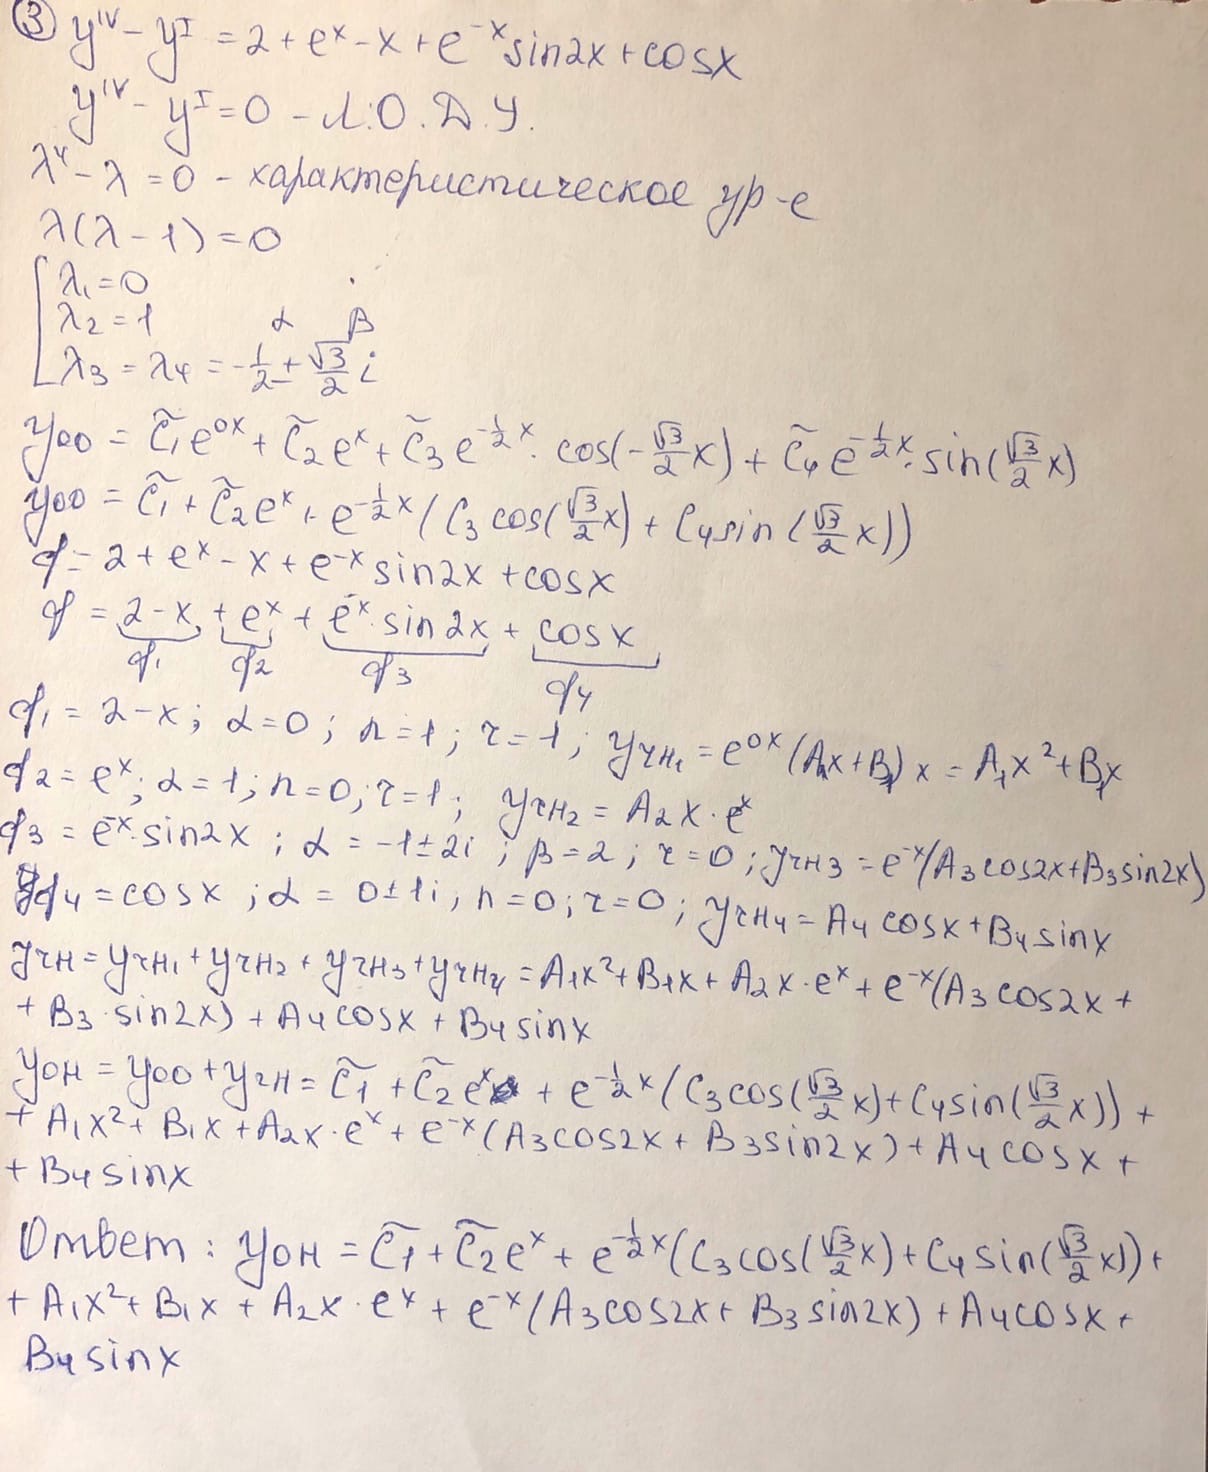 ③ y^IV - y^I = 2 + e^x - x + e^-x sin2x + cosx
y^IV - y^I = 0 - Л.О.Д.У.
λ^4 - λ = 0 - характеристическое ур-е
λ(λ - 1) = 0
λ₁ = 0
λ₂ = 1 α β
λ₃ = λ₄ = -1/2 ± √3/2 i
yоо = C̃₁e^0x + C̃₂e^x + C̃₃e^-1/2x · cos(-√3/2 x) + C̃₄e^-1/2x · sin(√3/2 x)
yоо = C̃₁ + C̃₂e^x + e^-1/2x (C₃cos(√3/2 x) + C₄sin(√3/2 x))
f = 2 + e^x - x + e^-x sin2x + cosx
f = 2 - x + e^x + e^-x · sin2x + cosx
f₁ f₂ f₃ f₄
f₁ = 2 - x; α = 0; n = 1; r = 1; yчн₁ = e^0x (A₁x + B₁) x = A₁x² + B₁x
f₂ = e^x; α = 1; n = 0; r = 1; yчн₂ = A₂x · e^x
f₃ = e^-x · sin2x; α = -1 ± 2i; β = 2; r = 0; yчн₃ = e^-x (A₃cos2x + B₃sin2x)
f₄ = cosx; α = 0 ± 1i; n = 0; r = 0; yчн₄ = A₄cosx + B₄sinx
yчн = yчн₁ + yчн₂ + yчн₃ + yчн₄ = A₁x² + B₁x + A₂x · e^x + e^-x (A₃cos2x +
+ B₃ · sin2x) + A₄cosx + B₄sinx
yон = yоо + yчн = C̃₁ + C̃₂e^x + e^-1/2x (C₃cos(√3/2 x) + C₄sin(√3/2 x)) +
+ A₁x² + B₁x + A₂x · e^x + e^-x (A₃cos2x + B₃sin2x) + A₄cosx +
+ B₄sinx
Ответ: yон = C̃₁ + C̃₂e^x + e^-1/2x (C₃cos(√3/2 x) + C₄sin(√3/2 x)) +
+ A₁x² + B₁x + A₂x · e^x + e^-x (A₃cos2x + B₃sin2x) + A₄cosx +
B₄sinx